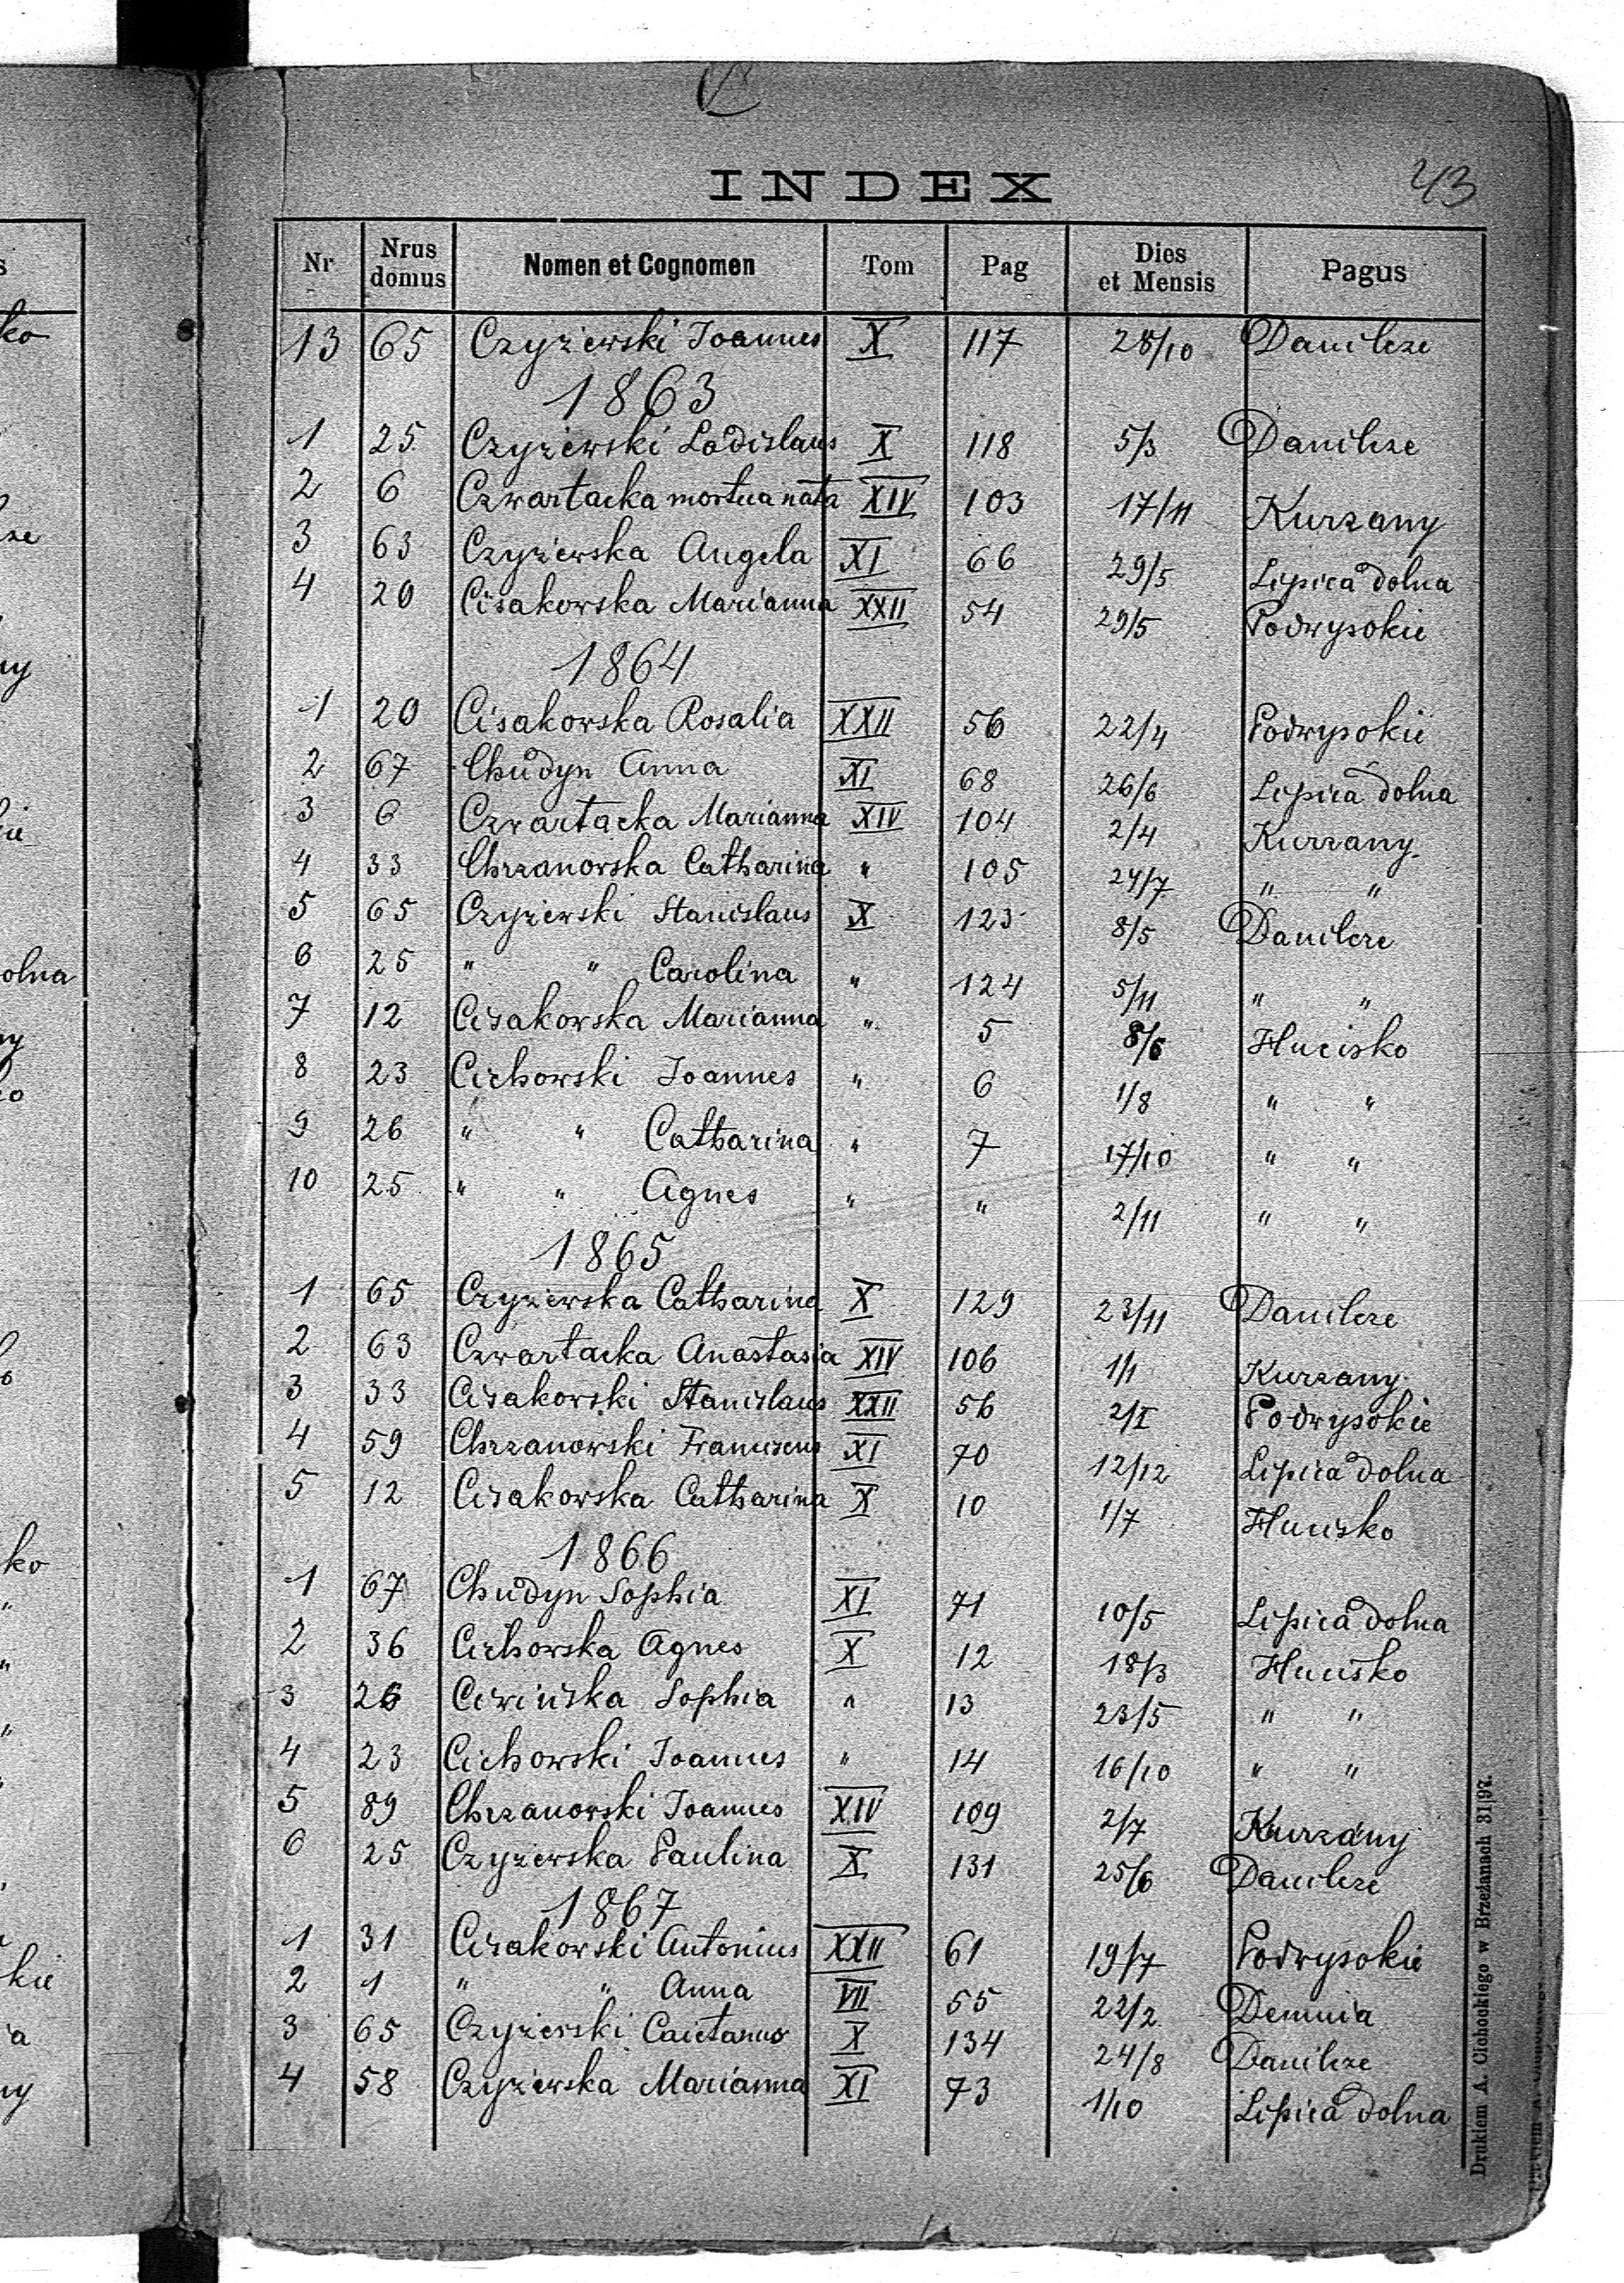 43
INDEX
Nr Nrus domus Nomen et Cognomen Tom Pag Dies et Mensis Pagus
13 65 Czyżewski Joannes X 117 28/10 Danilcze
1863
1 25 Czyżewski Ladislaus X 118 5/3 Danilcze
2 6 Czwartacka mortua nata XIV 103 17/11 Kurzany
3 63 Czyżewska Angela XI 66 29/5 Lipica dolna
4 20 Cisakowska Marianna XXII 54 29/5 Podwysokie
1864
1 20 Cisakowska Rosalia XXII 56 22/4 Podwysokie
2 67 Chudyn Anna XI 68 26/6 Lipica dolna
3 6 Czwartacka Marianna XIV 104 2/4 Kurzany
4 33 Chrzanowska Catharina " 105 24/7 " "
5 65 Czyżewski Stanislaus X 123 8/5 Danilcze
6 25 " " Carolina " 124 5/11 " "
7 12 Cisakowska Marianna " 5 8/6 Hucisko
8 23 Cichowski Joannes " 6 1/8 " "
9 26 " " Catharina " 7 17/10 " "
10 25 " " Agnes " " 2/11 " "
1865
1 65 Czyżewska Catharina X 129 23/11 Danilcze
2 63 Czwartacka Anastasia XIV 106 1/1 Kurzany
3 33 Cisakowski Stanislaus XXII 56 2/I Podwysokie
4 59 Chrzanowski Franciscus XI 70 12/12 Lipica dolna
5 12 Cisakowska Catharina X 10 1/7 Hucisko
1866
1 67 Chudyn Sophia XI 71 10/5 Lipica dolna
2 36 Cichowska Agnes X 12 18/3 Hucisko
3 26 Ciwińska Sophia " 13 23/5 " "
4 23 Cichowski Joannes " 14 16/10 " "
5 89 Chrzanowski Joannes XIV 109 2/7 Kurzany
6 25 Czyżewska Paulina X 131 25/6 Danilcze
1867
1 31 Cisakowski Antonius XXII 61 19/7 Podwysokie
2 1 " " Anna VII 55 22/2 Demnia
3 65 Czyżewski Caietanus X 134 24/8 Danilcze
4 58 Czyżewska Marianna XI 73 1/10 Lipica dolna
Drukiem A. Cichockiego w Brzeżanach 31|97.